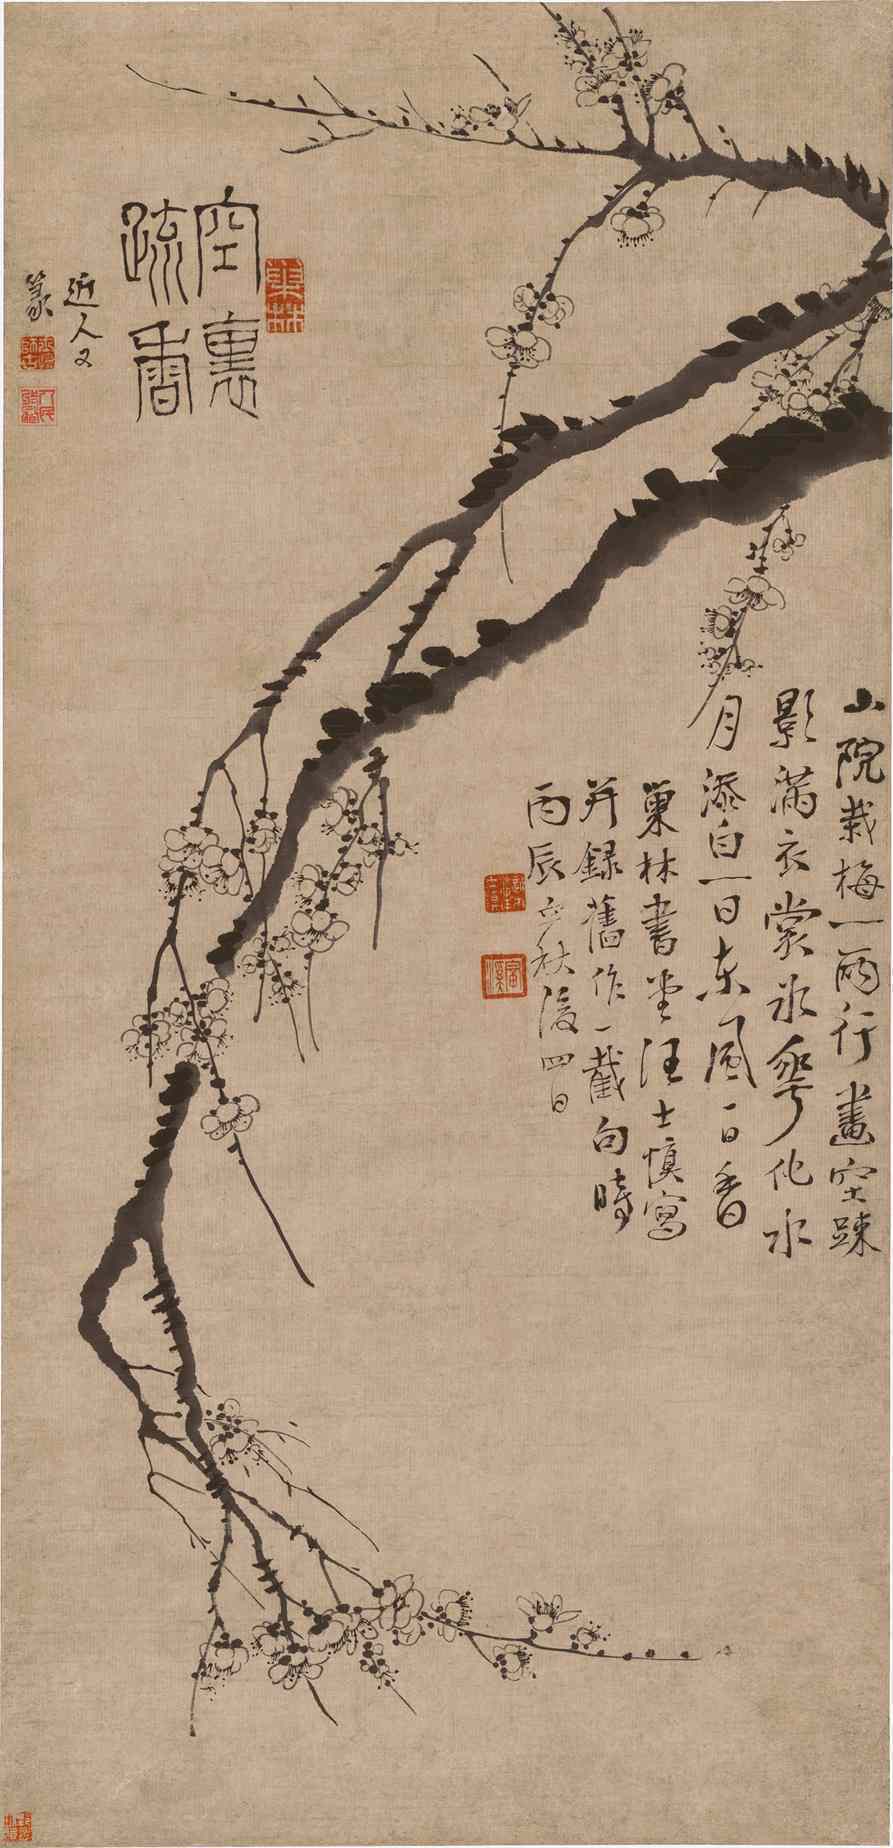 空裏
疏香
近人又
篆
巢林
山院栽梅一兩行畫空踈
影滿衣裳冰華化水
月添白一日東風一日香
巢林書堂汪士慎寫
并録舊作一截句時
丙辰立秋後四日
富溪